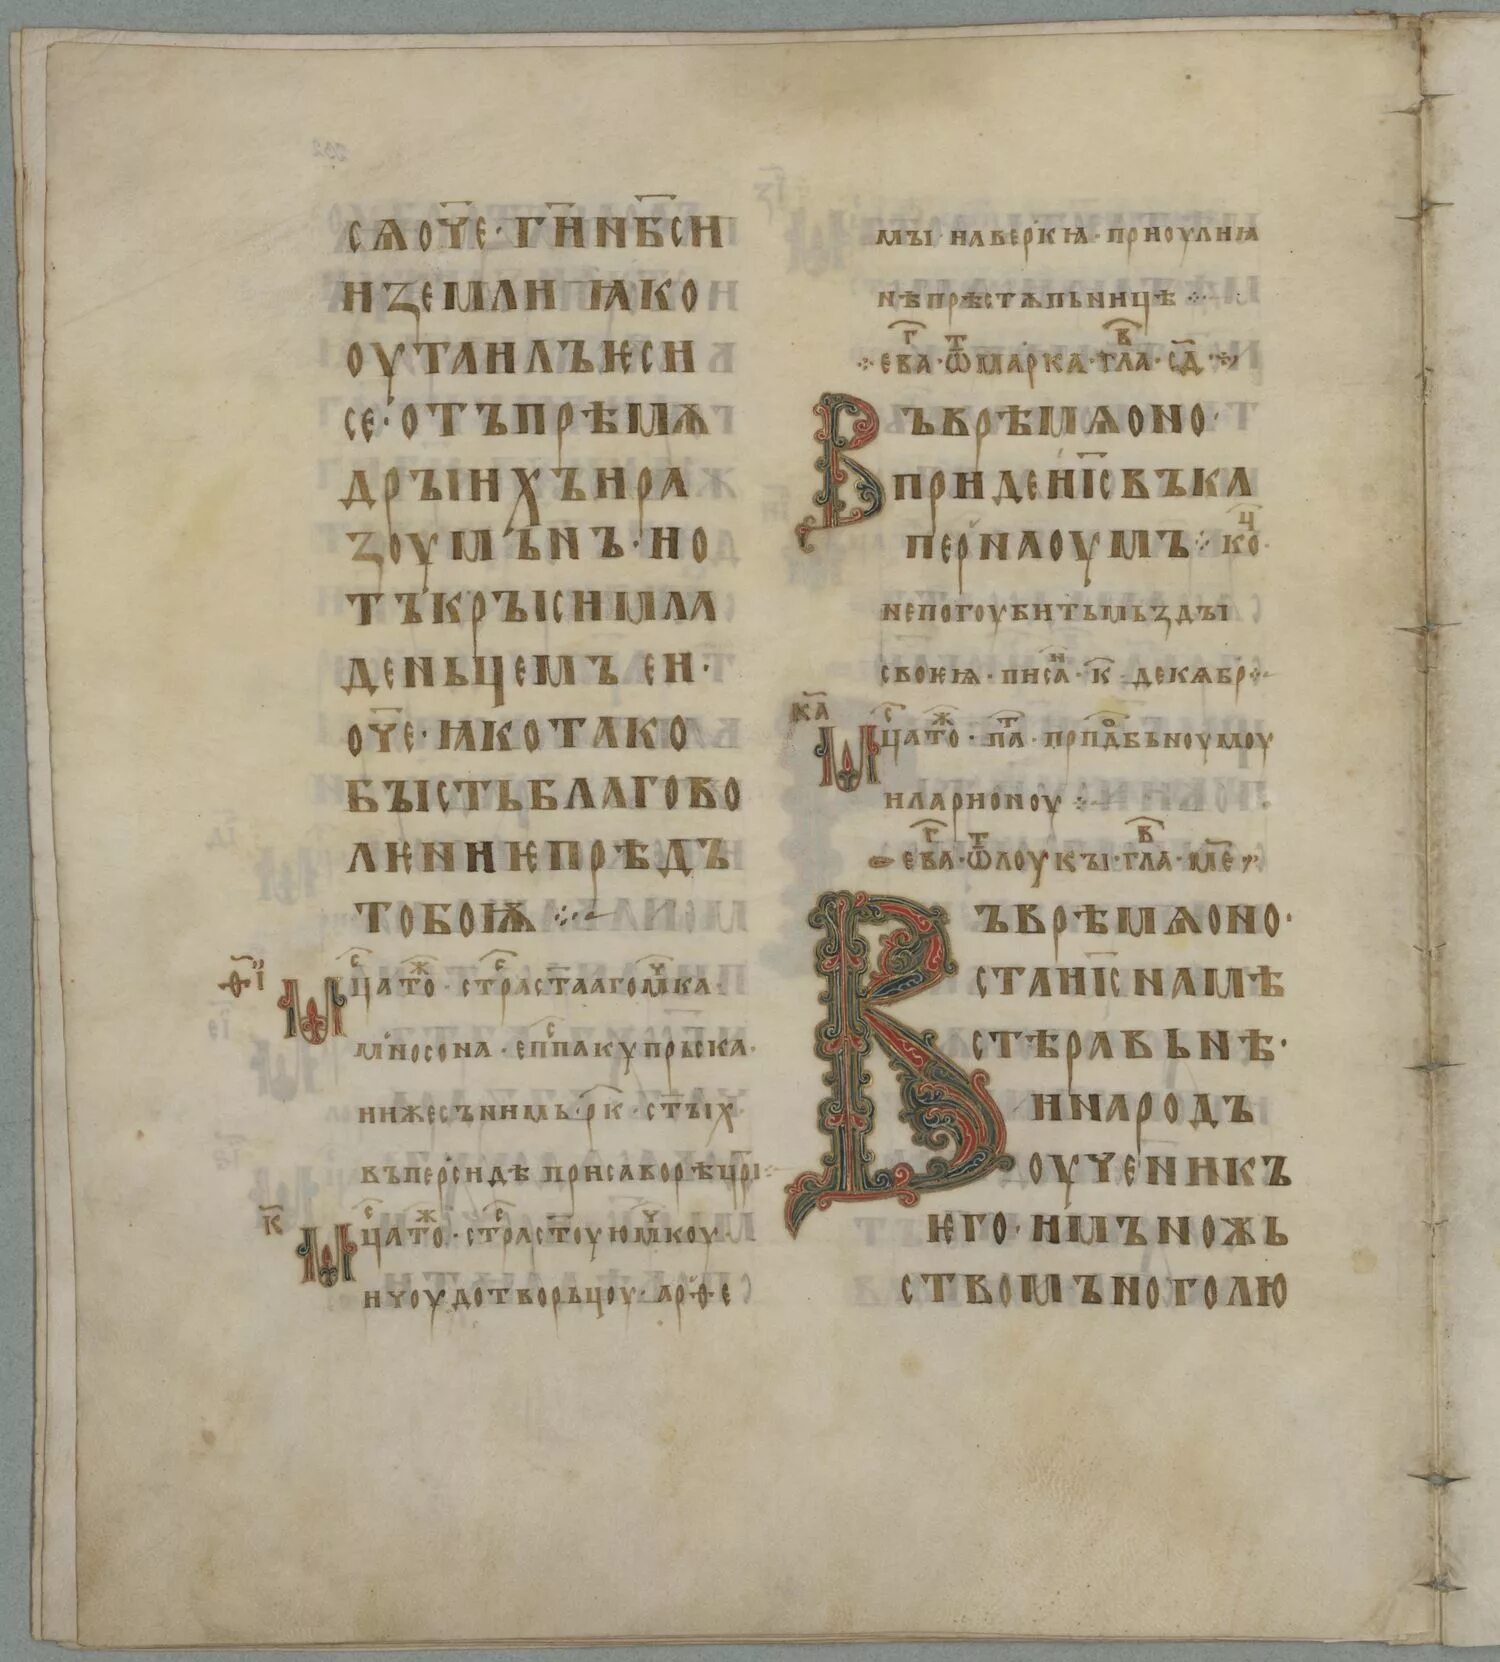 сѧ оч҃е · г҃и н҃бси
и земли ꙗко
оутаилъ ѥси
се · отъ прѣмѫ
дрꙑихъ и ра
зоумьнъ · и о
тъкрꙑ си мла
деньцемъ еи ·
оч҃е · ꙗко тако
бꙑсть благово
лѥниѥ прѣдъ
тобоѭ ⁘
ѳ҃і
Мⷭ҇ца тⷪ҇ · стрⷭ҇сть ст҃ааго мⷱ҇ка
мносона · епⷭ҇па купрьска
иже съ нимь р҃к · ст҃ꙑхъ
въ персидѣ при саворѣ цр҃і
к҃
Мⷭ҇ца тⷪ҇ · стрⷭ҇сть ст҃оуюмⷱ҇коу
ичоудотворьцоу · арѳе
мꙑ · и аверкиꙗ · приоулиꙗ
нѣ прѣстѫпьницѣ ⁘
ева · ѿ марка · гла · с҃д ·
Въ врѣмѧ оно ·
приде и҃с въ ка
перънаоумъ ⁘ ко
не погоубить мьздꙑ
своѥѧ · писа · к҃ · декѧбр ⁘
к҃а
Мⷭ҇ца тⷪ҇ · п҃а · прⷣпбьноумоу
илариѡноу ⁘
ева · ѿ лоукꙑ · гла · м҃е
Въ врѣмѧ оно ·
ста и҃с на мѣ
стѣ равьнѣ ·
и народъ
оученикъ
ѥго · и мъножь
ство мъного лю